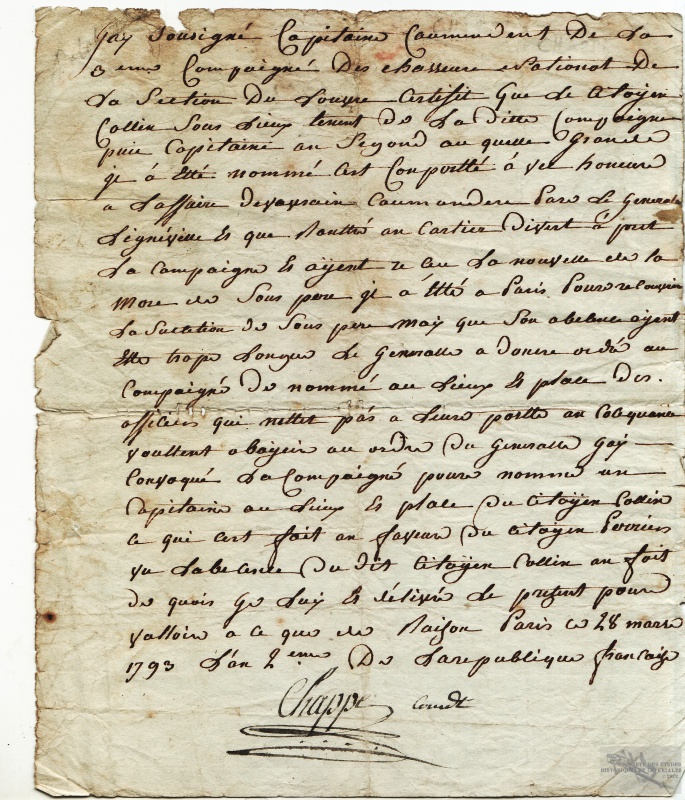 Gay Sousigné Capitaine Coumendent De La
3 eme Compaigné Des chasseure National De
La Section Du Louvre Certifit Que Le Citoyen
Collin Sous Lieux tenent De La Ditte Compaigne
puie Capitaine an Segond au quelle Grande
je à Etté nommé Cest Comportté à vec honeure
a Laffaire Coumandere Pare Le Generale
Ligniville Es que Rauttré an Cartier Divert à prit
La Campaigne Es ayent re cu La nouvelle de la
More de Sous pere je à Etté a Paris Poure
La Sucsetion de Sous pere may que Son abesence ayent
Etté trope Longue Le Generalle a donere ordre au
Compaigné De nommé au Lieux Es place Des.
officiere qui nettet pas a Leure postte an Consequance
voullent obayeir au ordre Du Generalle Gay
Convoqué La Compaigné poure nomme un
Capitaine au Lieux Es place Du Citoyen Collin
ce qui cest fait an faveure Du Citoyen
vu Labesence Du Dit Citoyen Collin an foit
De quois Ge Luy Es délivré Le present poure
valloire a ce que de Raison Paris ce 28 marse
1793 L'an 2eme De La republique française
Chappe Comdt
SOCIÉTÉ DES ÉTUDES
HISTORIQUES